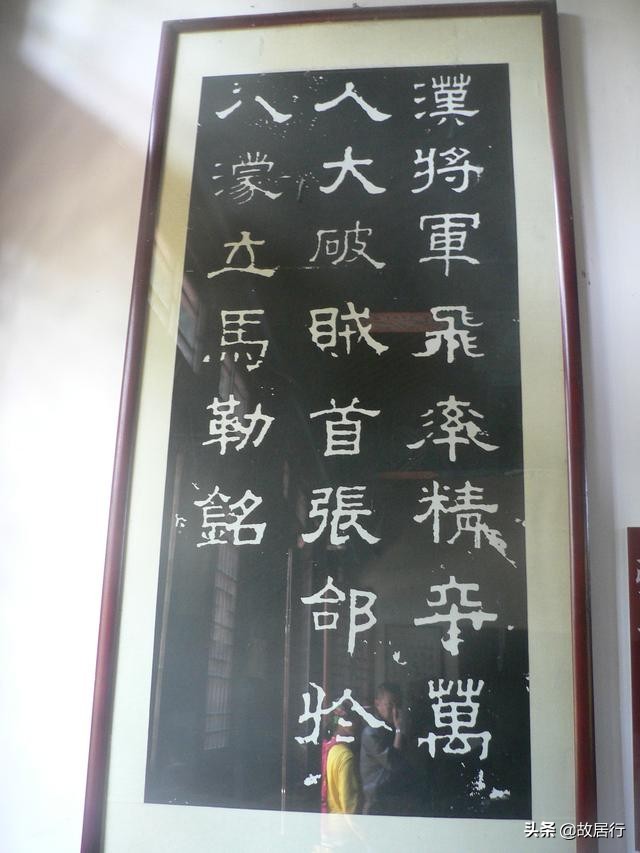 漢將軍飛率精卒萬
人大破賊首張郃於
八濛立馬勒銘
头条 @故居行